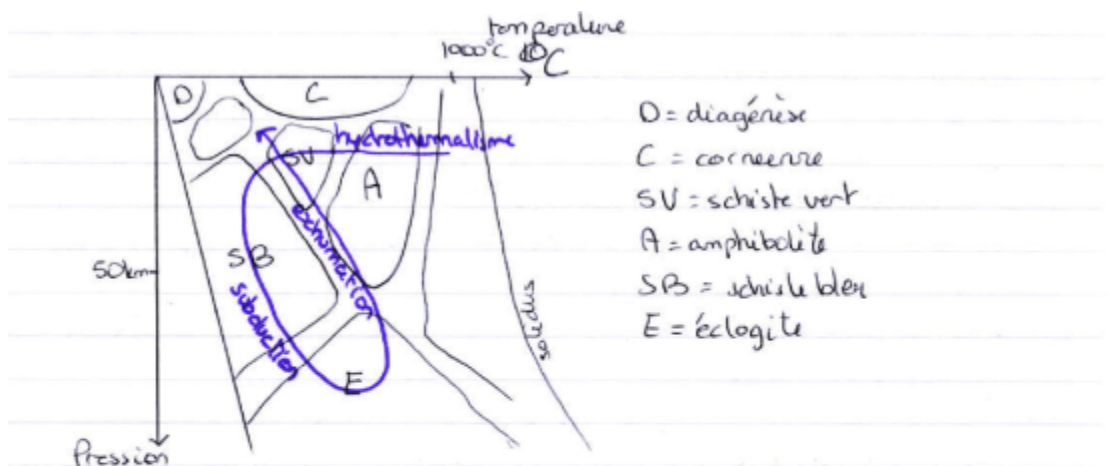 température
1000°C °C
D
C
hydrothermalisme
SV
A
exhumation
SB
50km
subduction
solidus
E
Pression
D = diagénèse
C = cornéenne
SV = schiste vert
A = amphibolite
SB = schiste bleu
E = éclogite